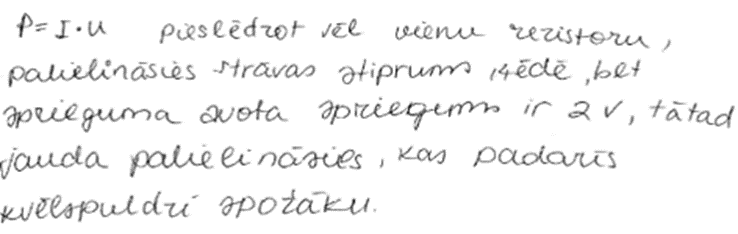 P = I · U pieslēdzot vēl vienu rezistoru,
palielināsies strāvas stiprums ķēdē, bet
sprieguma avota spriegums ir 2 V, tātad
jauda palielināsies, kas padarīs
kvēlspuldzi spožāku.